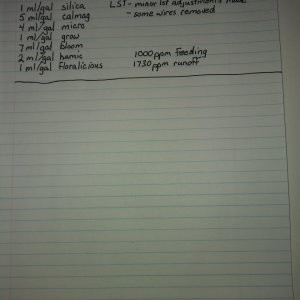 1 ml/gal silica LST - minor lst adjustments made
5 ml/gal calmag - some wires removed
4 ml/gal micro
1 ml/gal grow
7 ml/gal bloom
2 ml/gal humic 1000 ppm Feeding
1 ml/gal Floralicious 1730 ppm runoff